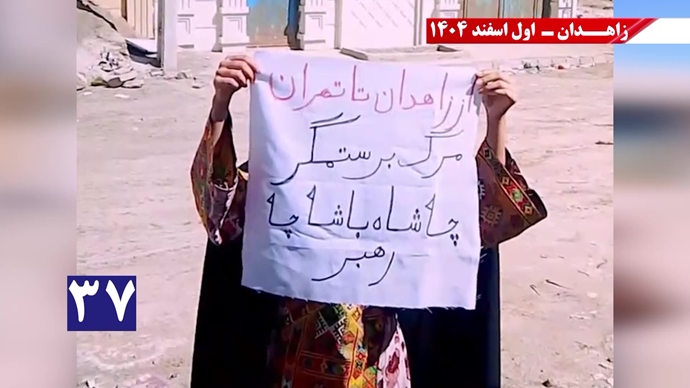 زاهدان - اول اسفند ۱۴۰۴
از زاهدان تا تهران
مرگ بر ستمگر
چا شاه باشا چا
رهبر
۳۷